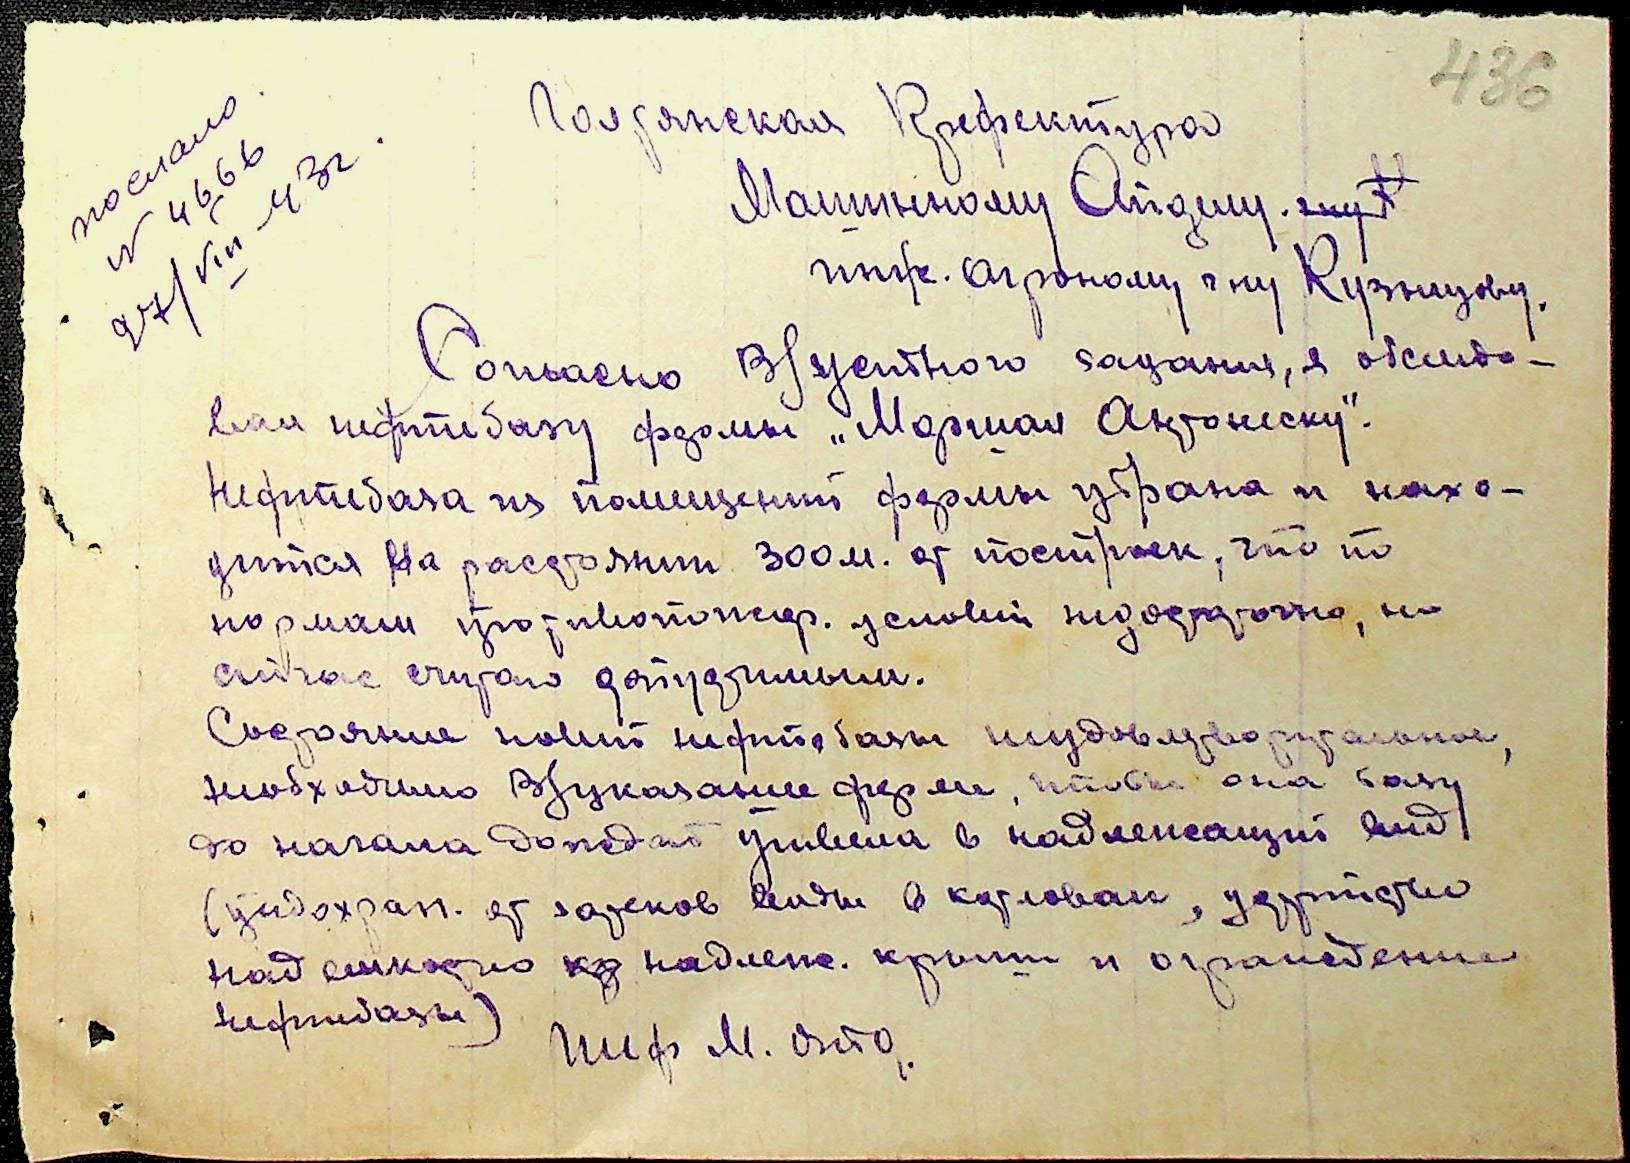 436
послано
N 4666
27/VIII-43г.
Голтянская Префектура
Машинному Отделу.
инж. агроному г-ну Кузнецову.
Согласно В/устного задания, я обследо-
вал нефтебазу фермы „Маршал Антонеску".
Нефтебаза из помещений фермы убрана и нахо-
дится на расстоянии 300 м. от построек, что по
нормам противопожар. условий недостаточно, но
сейчас считаю допустимым.
Состояние новой нефтебазы неудовлетворительное,
необходимо В/указание ферме, чтобы она базу
до начала дождей привела в надлежащий вид
(предохран. от затеков воды в котлован, устройство
над емкостью надлеж. крыши и ограждение
нефтебазы)
Шеф М. отд.